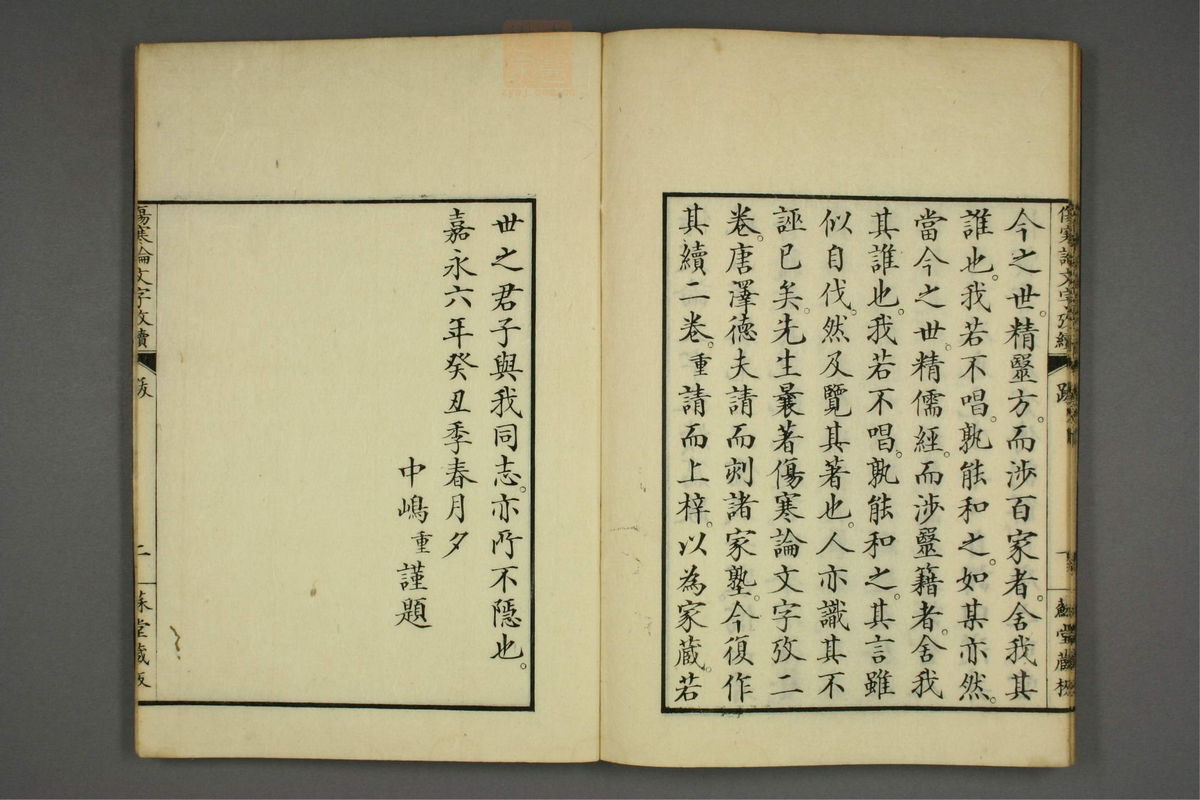 今之世。精毉方。而涉百家者。舍我其
誰也。我若不唱。孰能和之。如某亦然。
當今之世。精儒經。而涉毉籍者。舍我
其誰也。我若不唱。孰能和之。其言雖
似自伐。然及覽其著也。人亦識其不
誣已矣。先生曩著傷寒論文字攷二
卷。唐澤德夫請而刻諸家塾。今復作
其續二卷。重請而上梓。以為家蔵。若
世之君子與我同志。亦所不隱也。
嘉永六年癸丑季春月夕
中嶋重謹題
傷寒論文字攷續
跋
二